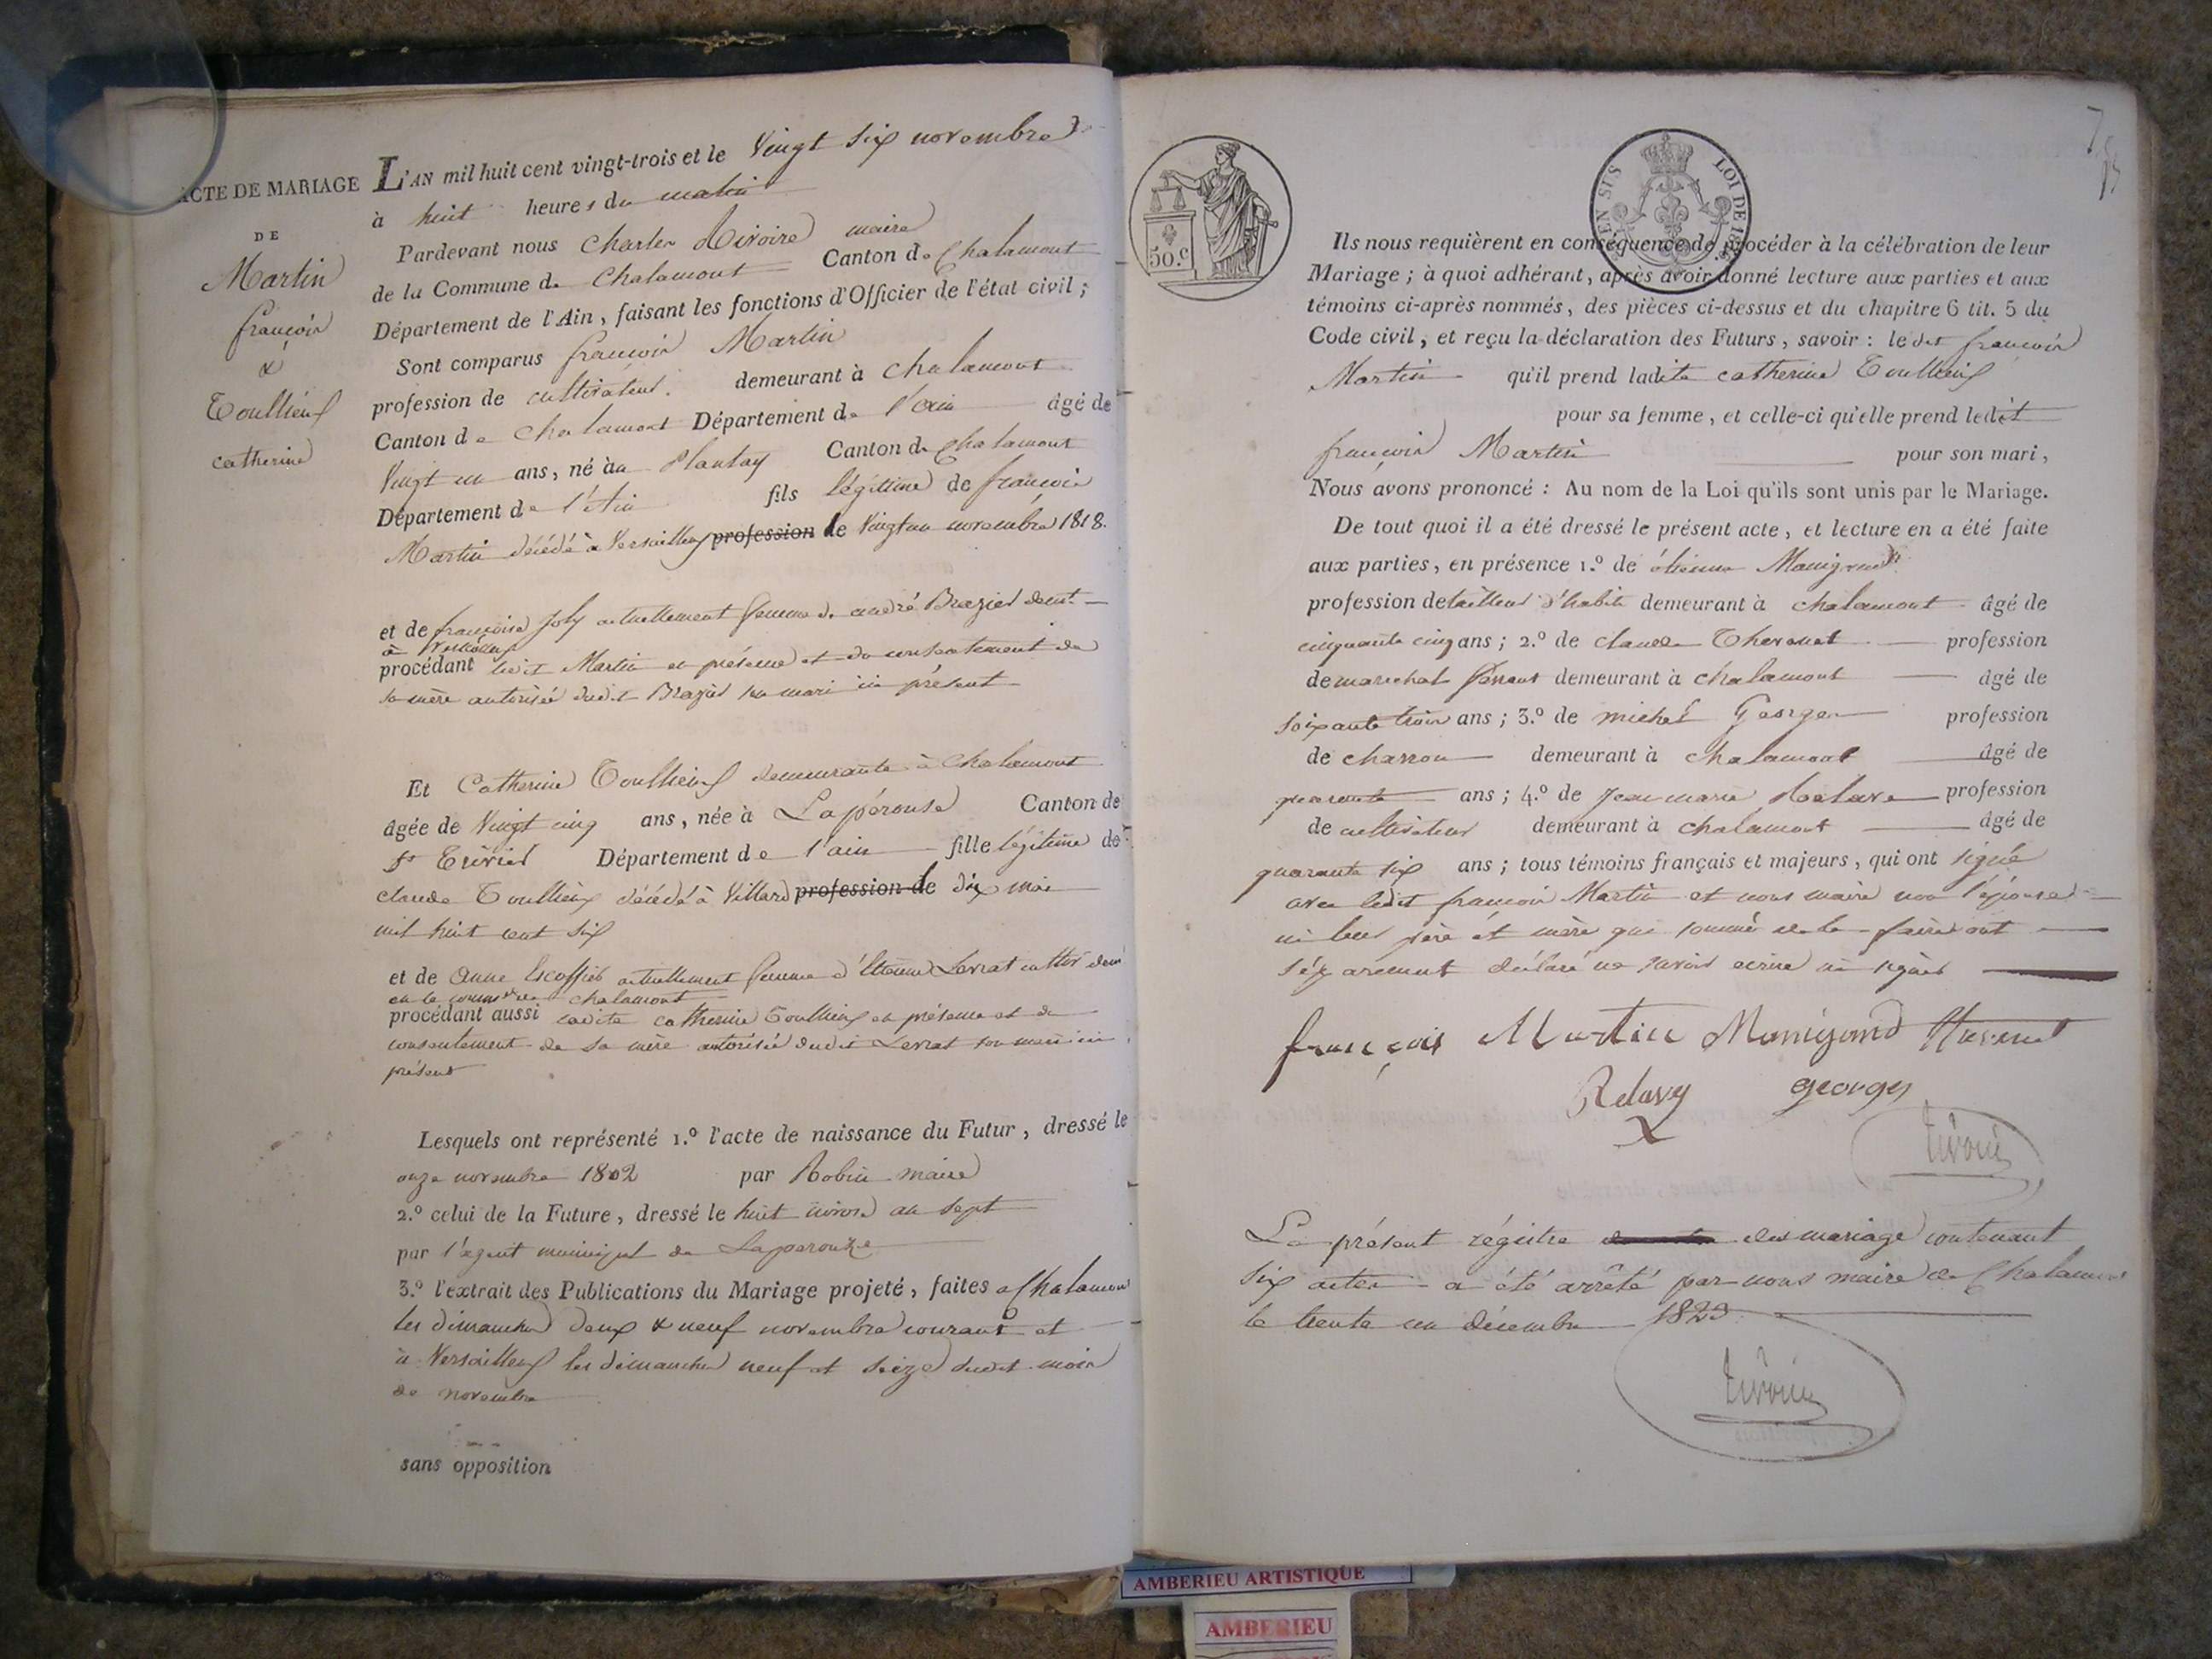 ACTE DE MARIAGE
DE
Martin
françois
&
Toullieux
catherine
L'AN mil huit cent vingt-trois et le Vingt six novembre
à huit heures du matin
Pardevant nous Charles Rivoire maire
de la Commune de Chalamont Canton de Chalamont
Département de l'Ain, faisant les fonctions d'Officier de l'état civil ;
Sont comparus françois Martin
profession de cultivateur demeurant à Chalamont
Canton de Chalamont Département de l'ain âgé de
Vingt un ans, né au Plantay Canton de Chalamont
Département de l'Ain fils légitime de françois
Martin décédé à Versailleux profession de Vingt un novembre 1818.
et de françoise Joly actuellement femme de andré Brazier demt
à Versailleux
procédant ledit Martin en présence et du consentement de
sa mère autorisée dudit Brazier son mari ici présent
Et Catherine Toullieux demeurante à Chalamont
âgée de Vingt cinq ans, née à Lapérouse Canton de
St Trivier Département de l'ain fille légitime de
claude Toullieux décédé à Villars profession de le dix mai
mil huit cent six
et de Anne Escoffier actuellement femme d'Etienne Levrat culttr demt
en la commune de chalamont
procédant aussi ladite catherine Toullieux en présence et du
consentement de sa mère autorisée dudit Levrat son mari ici
présent
Lesquels ont représenté 1.º l'acte de naissance du Futur, dressé le
onze novembre 1802 par Robin maire
2.º celui de la Future, dressé le huit nivose an sept
par l'agent municipal de Laperouze
3.º l'extrait des Publications du Mariage projeté, faites à Chalamont
les dimanches deux & neuf novembre courant et
à Versailleux les dimanches neuf et seize dudit mois
de novembre
sans opposition
50.c
EN SUS LOI DE 18
7
Ils nous requièrent en conséquence de procéder à la célébration de leur
Mariage ; à quoi adhérant, après avoir donné lecture aux parties et aux
témoins ci-après nommés, des pièces ci-dessus et du chapitre 6 tit. 5 du
Code civil, et reçu la déclaration des Futurs, savoir : ledit françois
Martin qu'il prend ladite catherine Toullieux
pour sa femme, et celle-ci qu'elle prend ledit
françois Martin pour son mari,
Nous avons prononcé : Au nom de la Loi qu'ils sont unis par le Mariage.
De tout quoi il a été dressé le présent acte, et lecture en a été faite
aux parties, en présence 1.º de étienne Manigand
profession de tailleur d'habits demeurant à chalamont âgé de
cinquante cinq ans ; 2.º de claude Thevenet profession
de marechal ferrant demeurant à chalamont âgé de
soixante trois ans ; 3.º de michel Georges profession
de charron demeurant à chalamont âgé de
quarante ans ; 4.º de Jean marie Relave profession
de cultivateur demeurant à chalamont âgé de
quarante six ans ; tous témoins français et majeurs, qui ont signé
avec ledit françois Martin et nous maire non l'épouse
ni leur père et mère qui sommé de le faire ont
séparément déclaré ne savoir ecrire ni signer
françois Martin Manigand Thevenet
Relavy georges
rivoire
Le présent régistre des mariage contenant
six actes a été arrêté par nous maire de Chalamont
le trente un décembre 1823
rivoire
AMBERIEU ARTISTIQUE
AMBERIEU